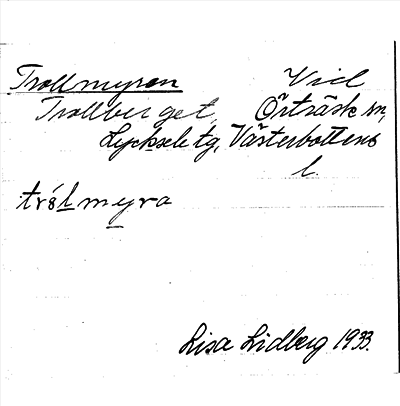 Trollmyren Vid
Trollberget, Örträsk sn,
Lycksele tg, Västerbottens
l.
trólmyra
Lisa Lidberg 1933.